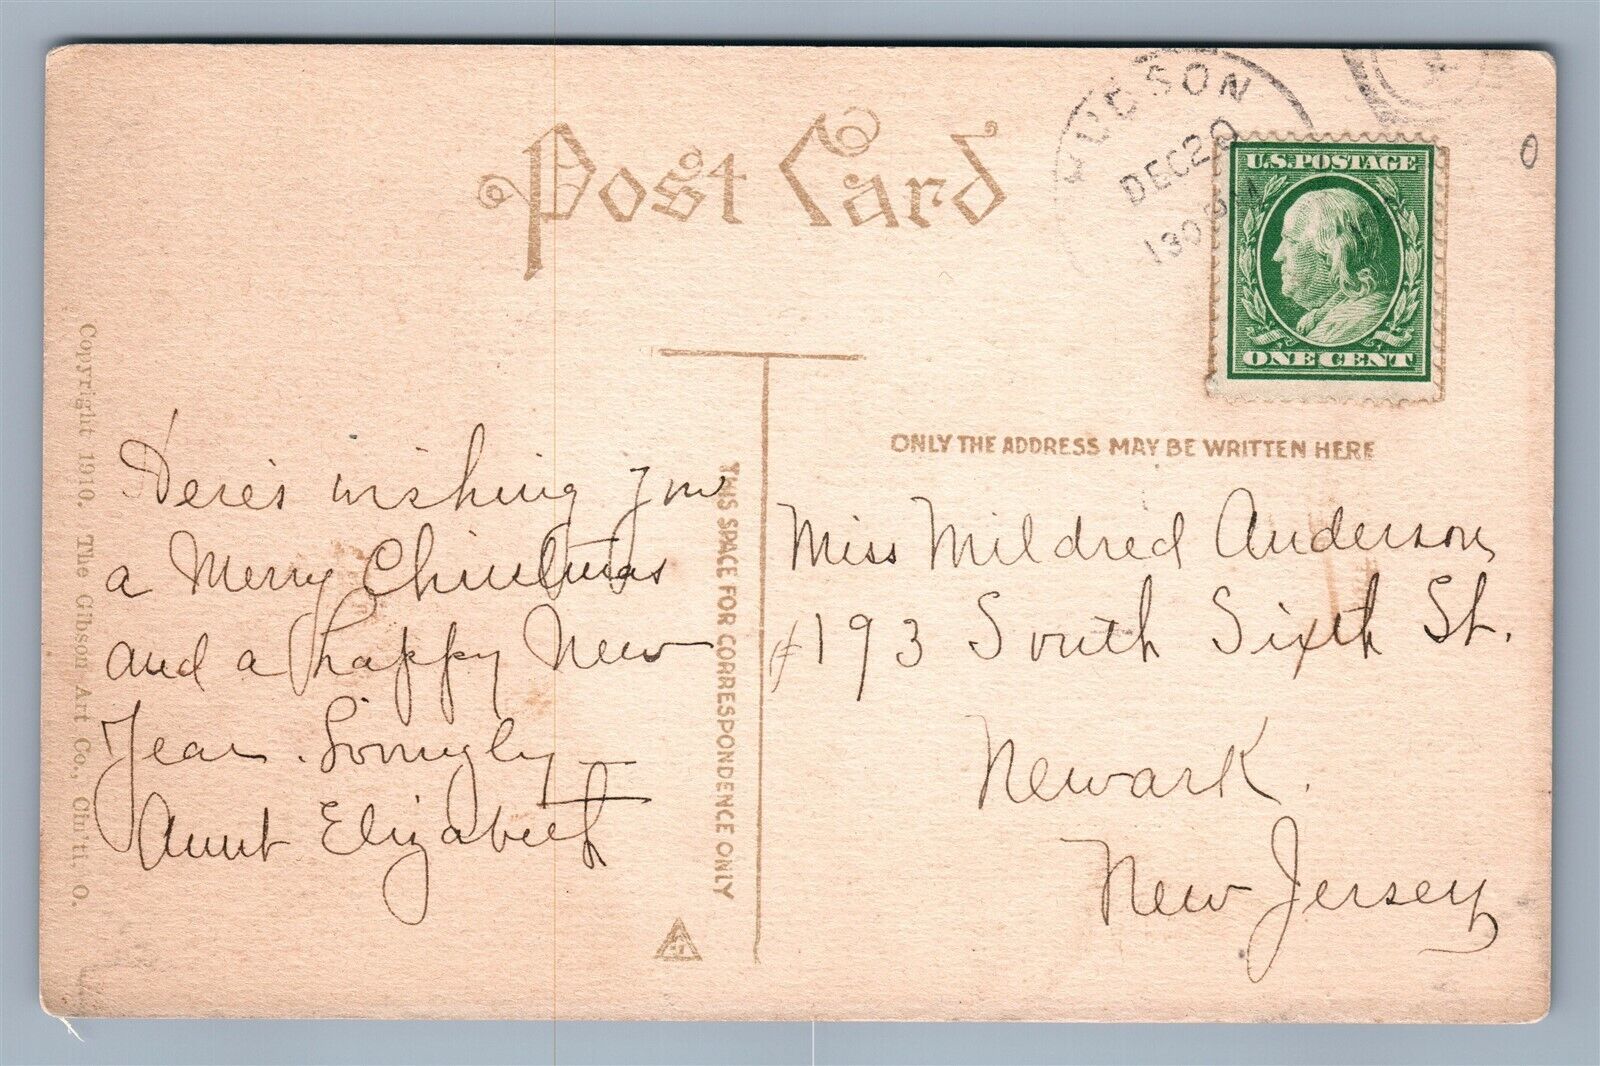 Post Card
HUDSON
DEC 20
130 P M
U.S. POSTAGE
ONE CENT
ONLY THE ADDRESS MAY BE WRITTEN HERE
THIS SPACE FOR CORRESPONDENCE ONLY
Copyright 1910. The Gibson Art Co., Cin'ti, O.
Here's wishing you
a Merry Christmas
and a happy New
Year. Lovingly
Aunt Elizabeth
Miss Mildred Anderson
#193 South Sixth St.
Newark.
New Jersey
0